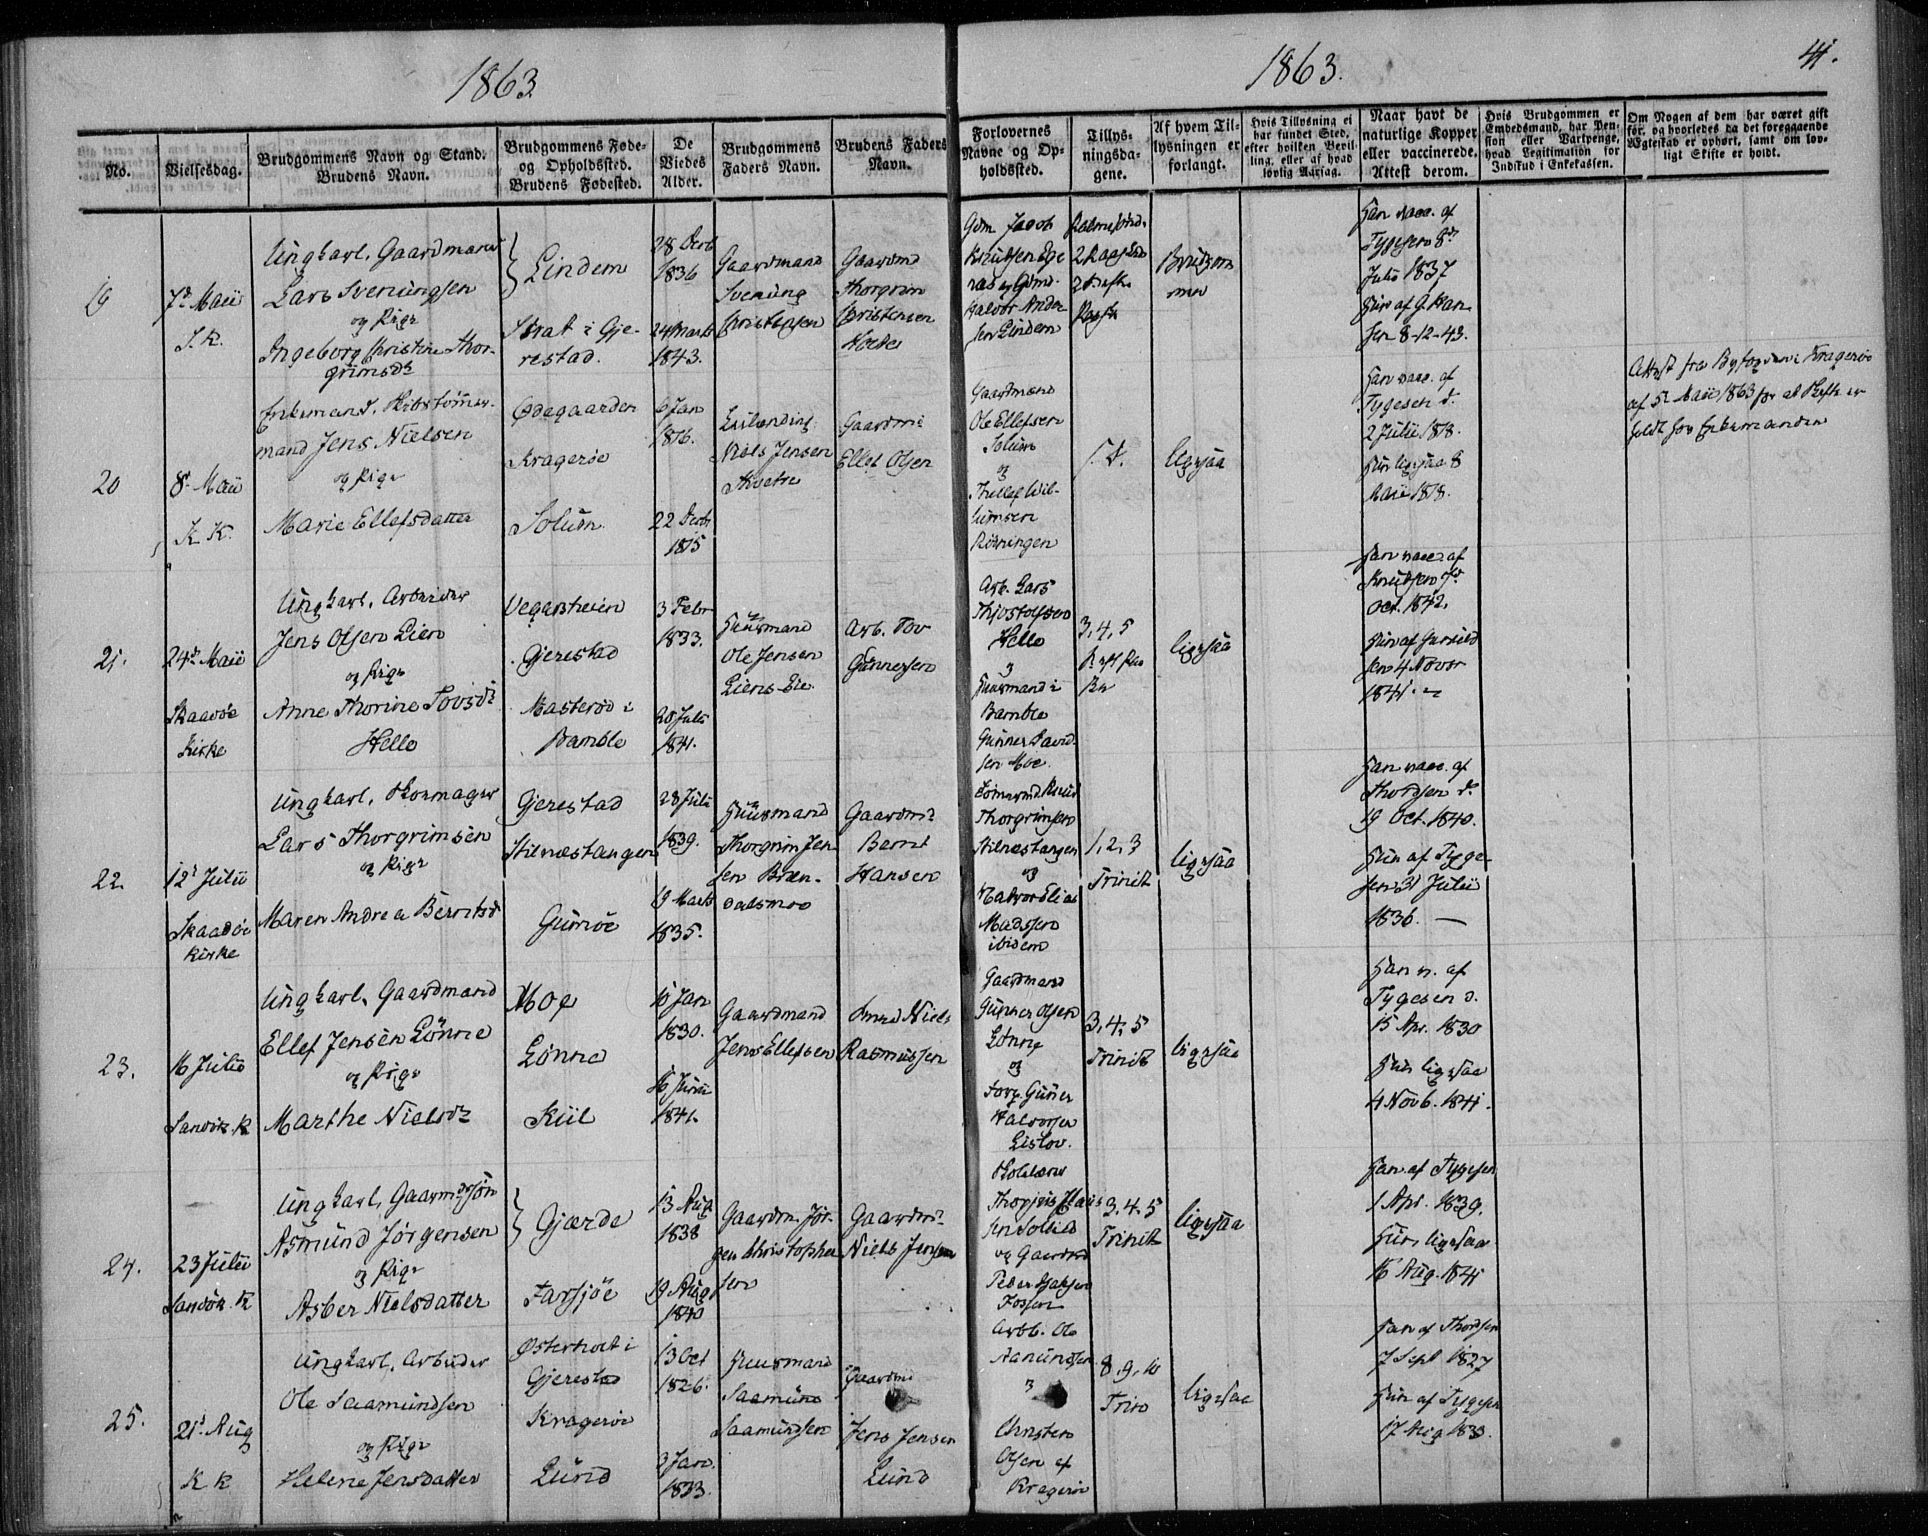 1863
1863.
41.
No.
Vielsesdag.
Brudgommens Navn og Stand.
Brudens Navn.
Brudgommens Føde-
og Opholdssted.
Brudens Fødested.
De
Viedes
Alder.
Brudgommens
Faders Navn.
Brudens Faders
Navn.
Forlovernes
Navne og Op-
holdssted.
Tillys-
ningsda-
gene.
Af hvem Til-
lysningen er
forlangt.
Hvis Tillysning ei
har fundet Sted,
efter hvilken Bevil-
ling, eller af hvad
lovlig Aarsag.
Naar havt de
naturlige Kopper
eller vaccinerede,
Attest derom.
Hvis Brudgommen er
Embedsmand, har Pen-
sion eller Vartpenge,
hvad Legitimation for
Indskud i Enkekassen.
Om Nogen af dem har været gift
før, og hvorledes da det foregaaende
Ægteskab er ophørt, samt om lov-
ligt Skifte er holdt.
19
7d Maii
S.K.
Ungkarl, Gaardmand
Lars Svenungsen
og Pige
Ingeborg Christine Thor-
grimsdr
Lindem
Strat i Gje-
restad.
28 Decb
1836
24 Marts
1843.
Gaardmand
Svenung
Christophsen
Gaardmd
Thorgrim
Christensen
Gdm Jacob
Knudsen
Halvor Ander
sen Lindem
Brudgom
men
Han vacc. af
Tygesen 8d
Julii 1837
Hun af G. Han-
sen 8-12-43.
20
8d Maii
K K.
Enkemand,
mand Jens Nielsen
og Pige
Marie Ellefsdatter
Ødegaarden
Kragerøe
Solum
6 Jan
1816.
22 Decb
1815
Niels Jensen
Gaardmd
Ellef Olsen
Gaardmand
Ole Ellefsen
Solum
og
Thellef Wil-
lumsen
Rønningen
ligesaa
Han vacc. af
Tygesen d.
2 Julii 1818.
Hun ligesaa 8
Maii 1818.
Attest fra Bygfogden i Kragerøe
af 5t Maii 1863 for at Skifte er
holdt for Enkemanden
21.
24d Maii
Skaadøe
Kirke
Ungkarl, Arbeider
Jens Olsen Lien
og Pige
Anne Thorine Tovsdr
Helle
Vegarsheien
Gjerestad
Masterød i
Bamble
3 Febr
1833.
28 Julii
1841.
Huusmand
Ole Jensen
Liens Eie
Arb. Tov
Gunnersen
Arb. Lars
Thjostolfsen
Helle
og
Huusmand i
Bamble
Gunner David-
sen Moe.
3, 4, 5
ligesaa
Han vacc af
Knudsen 7d
Oct. 1842.
Hun af
sen 4 Novbr
1841.
22.
12d Julii
Skaadøe
Kirke
Ungkarl, Skomager
Lars Thorgrimsen
og Pige
Maren Andrea Berntsdr
Gjerestad
Stilnestangen
Gumøe
28 Julii
1839.
9 Marts
1835.
Huusmand
Thorgrim Jen-
sen Bræn-
dalsmoe
Gaardmd
Bernt
Hansen
Tømmermd Knud
Thorgrimsen
Stilnestangen
og
Halvor Elias
Madssen
ibidem
1, 2, 3
Trinit
ligesaa
Han vacc. af
Thordsen d.
19 Oct. 1840.
Hun af Tyge-
sen 31 Julii
1836.
23.
16 Julii
Sandøk. K
Ungkarl, Gaardmand
Ellef Jensen Lønne
og Pige
Marthe Nielsdr
Moe
Lønne
Kiil
10 Jan
1830.
16 Junii
1841.
Gaardmand
Jens Ellefsen
Niels
Rasmussen
Gaardmand
Gunner Olsen
Lønne
og
Forp. Gunner
Halvorsen
Lislov.
3, 4, 5
Trinit
ligesaa
Han v. af
Tygesen d.
15 Apr. 1830
Hun ligesaa
4 Novb. 1841.
24.
23 Julii
Sandøk. K
Ungkarl, Gaardmdssøn
Asmund Jørgensen
og Pige
Asber Nielsdatter
Gjærde
Farsjøe
13 Aug
1838
19 Aug
1840
Gaardm. Jør-
gen Christopher-
sen
Gaardmd
Niels Jensen
Skolelærer
og Gaardmd
Peder Isaksen
Fossen
3. 4. 5
Trinit
ligesaa
Han af Tygesen
1 Apr. 1839.
Hun ligesaa
16 Aug. 1841
25.
21d Aug
K K
Ungkarl, Arbeider
Ole Saamundsen
og Pige
Helene Jensdatter
Østerholt i
Gjerestad
Kragerøe
Lund
13 Oct
1826.
3 Jan.
1833.
Huusmand
Saamund
Saamundsen
Gaardmd
Jens Jensen
Lund
Arbb. Ole
Aanundsen
og
Christen
Olsen af
Kragerøe
8. 9. 10
Trin
ligesaa
Han af Thordsen
7 Sept 1827
Hun af Tygesen
17 Aug 1833.